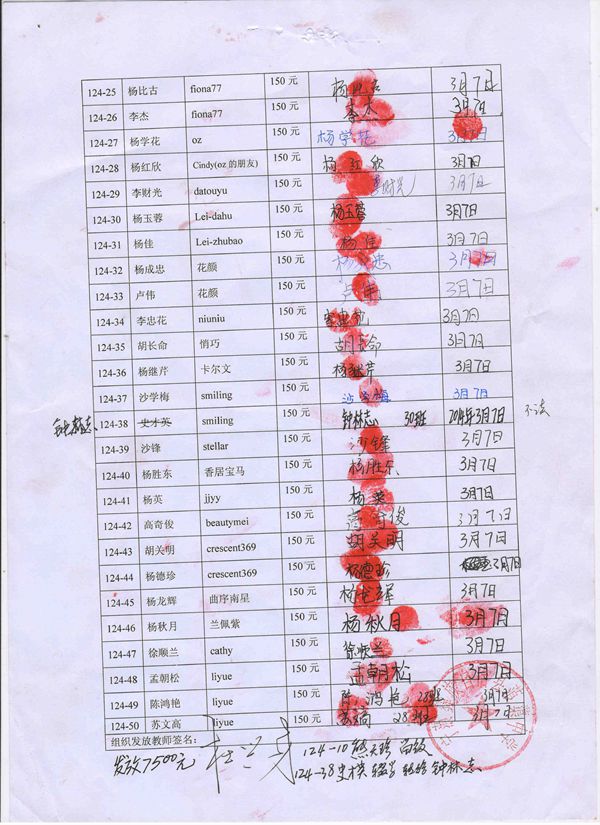 124-25 杨比古 fiona77 150 元 杨比古 3月7日
124-26 李杰 fiona77 150 元 李杰 3月7日
124-27 杨学花 oz 150 元 杨学花 3月7日
124-28 杨红欣 Cindy(oz 的朋友) 150 元 杨红欣 3月7日
124-29 李财光 datouyu 150 元 李财光 3月7日
124-30 杨玉蓉 Lei-dahu 150 元 杨玉蓉 3月7日
124-31 杨佳 Lei-zhubao 150 元 杨佳 3月7日
124-32 杨成忠 花颜 150 元 杨成忠 3月7日
124-33 卢伟 花颜 150 元 卢伟 3月7日
124-34 李忠花 niuniu 150 元 李忠花 3月7日
124-35 胡长命 悄巧 150 元 胡长命 3月7日
124-36 杨继芹 卡尔文 150 元 杨继芹 3月7日
124-37 沙学梅 smiling 150 元 沙学梅 3月7日
钟林志 124-38 史才英 smiling 150 元 钟林志 30班 2014年3月7日
124-39 沙锋 stellar 150 元 沙锋 3月7日
124-40 杨胜东 香居宝马 150 元 杨胜东 3月7日
124-41 杨英 jjyy 150 元 杨英 3月7日
124-42 高奇俊 beautymei 150 元 高奇俊 3月7日
124-43 胡关明 crescent369 150 元 胡关明 3月7日
124-44 杨德珍 crescent369 150 元 杨德珍 3月7日
124-45 杨龙辉 曲序南星 150 元 杨龙辉 3月7日
124-46 杨秋月 兰佩紫 150 元 杨秋月 3月7日
124-47 徐顺兰 cathy 150 元 徐顺兰 3月7日
124-48 孟朝松 liyue 150 元 孟朝松 3月7日
124-49 陈鸿艳 liyue 150 元 陈鸿艳 28班 3月7日
124-50 苏文高 liyue 150 元 苏文高 28班 3月7日
组织发放教师签名:
发放7500元
124-10 熊天珍
124-38 史 钟林志